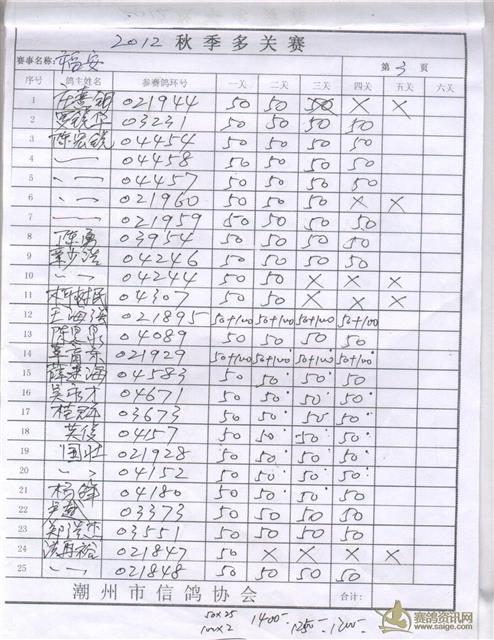 2012 秋季多关赛
赛事名称: 福安 第 3 页
序号 鸽主姓名 参赛鸽环号 一关 二关 三关 四关 五关 六关
1 021944 50 50 50 × ×
2 03231 50 50 50 50
3 陈宏锐 04454 50 50 50 50
4 〃 04458 50 50 50 50
5 〃 04457 50 50 50 50
6 〃 021960 50 50 50 × ×
7 〃 021959 50 50 50 50
8 陈勇 03954 50 50 50 50
9 04246 50 50 50 50
10 〃 04244 50 50 × × ×
11 04307 50 50 × × ×
12 王海强 021895 50+100 50+100 50+100 50+100
13 04089 50 50 50 50
14 021929 50+100 50+100 50+100 50+100
15 04583 50 50 50 50
16 04671 50 50 50 50
17 03673 50 50 50 50
18 英俊 04157 50 50 50 50
19 国壮 021928 50 50 50 50
20 〃 04152 50 50 50 50
21 杨锋 04180 50 50 50 50
22 03373 50 50 50 50
23 03551 50 50 50 50
24 021847 50 × × × ×
25 〃 021848 50 50 50 50
潮州市信鸽协会 合计:
50×25 1400 1250 1200
100×2
赛鸽资讯网
www.saige.com